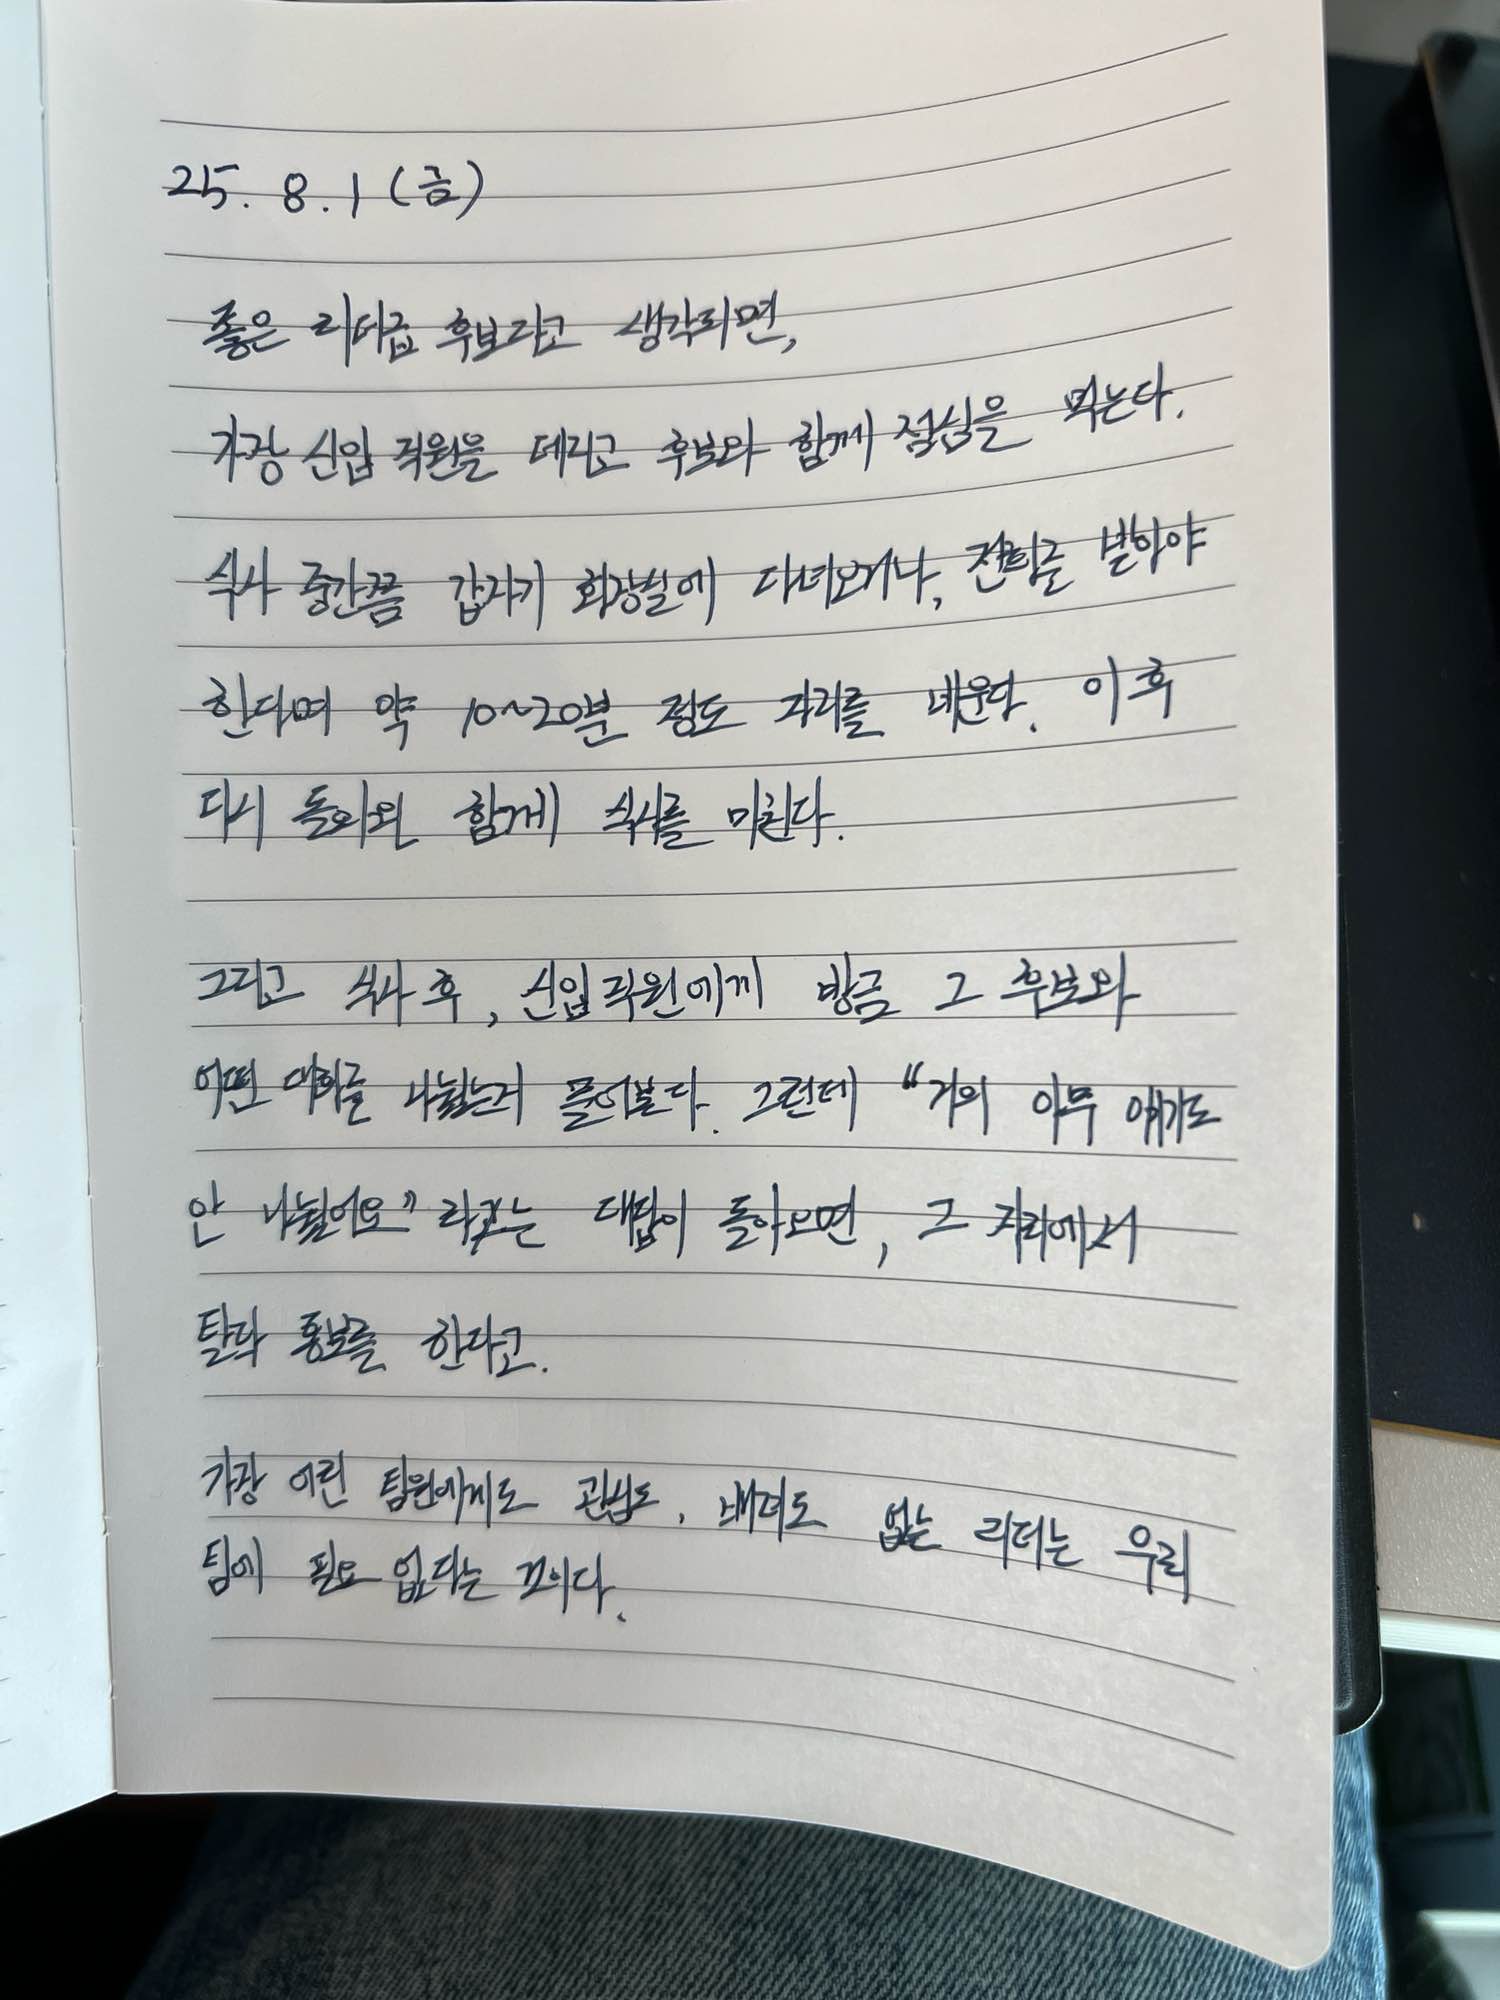 25. 8. 1 (금)
좋은 리더급 후보라고 생각되면,
가장 신입 직원을 데리고 후보와 함께 점심을 먹는다.
식사 중간쯤 갑자기 화장실에 다녀오거나, 전화를 받아야
한다며 약 10~20분 정도 자리를 비운다. 이후
다시 돌아와 함께 식사를 마친다.
그리고 식사 후, 신입직원에게 방금 그 후보와
어떤 대화를 나눴는지 물어본다. 그런데 "거의 아무 얘기도
안 나눴어요" 라는 대답이 돌아오면, 그 자리에서
탈락 통보를 한다고.
가장 어린 팀원에게도 관심도, 배려도 없는 리더는 우리
팀에 필요 없다는 것이다.